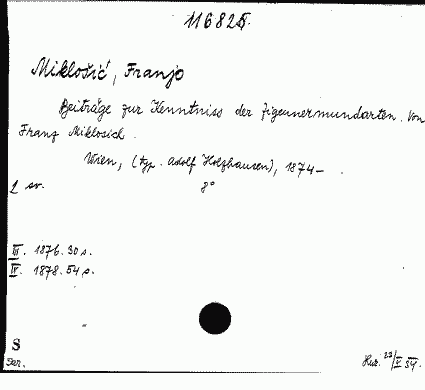 116825.
Miklošić, Franjo
Beiträge zur Kenntniss der Zigeunermundarten. Von
Franz Miklosich.
Wien, (typ. Adolf Holzhausen), 1874 – .
2 sv. 8°
III. 1876. 30 s.
IV. 1878. 54 s.
S
Ser.